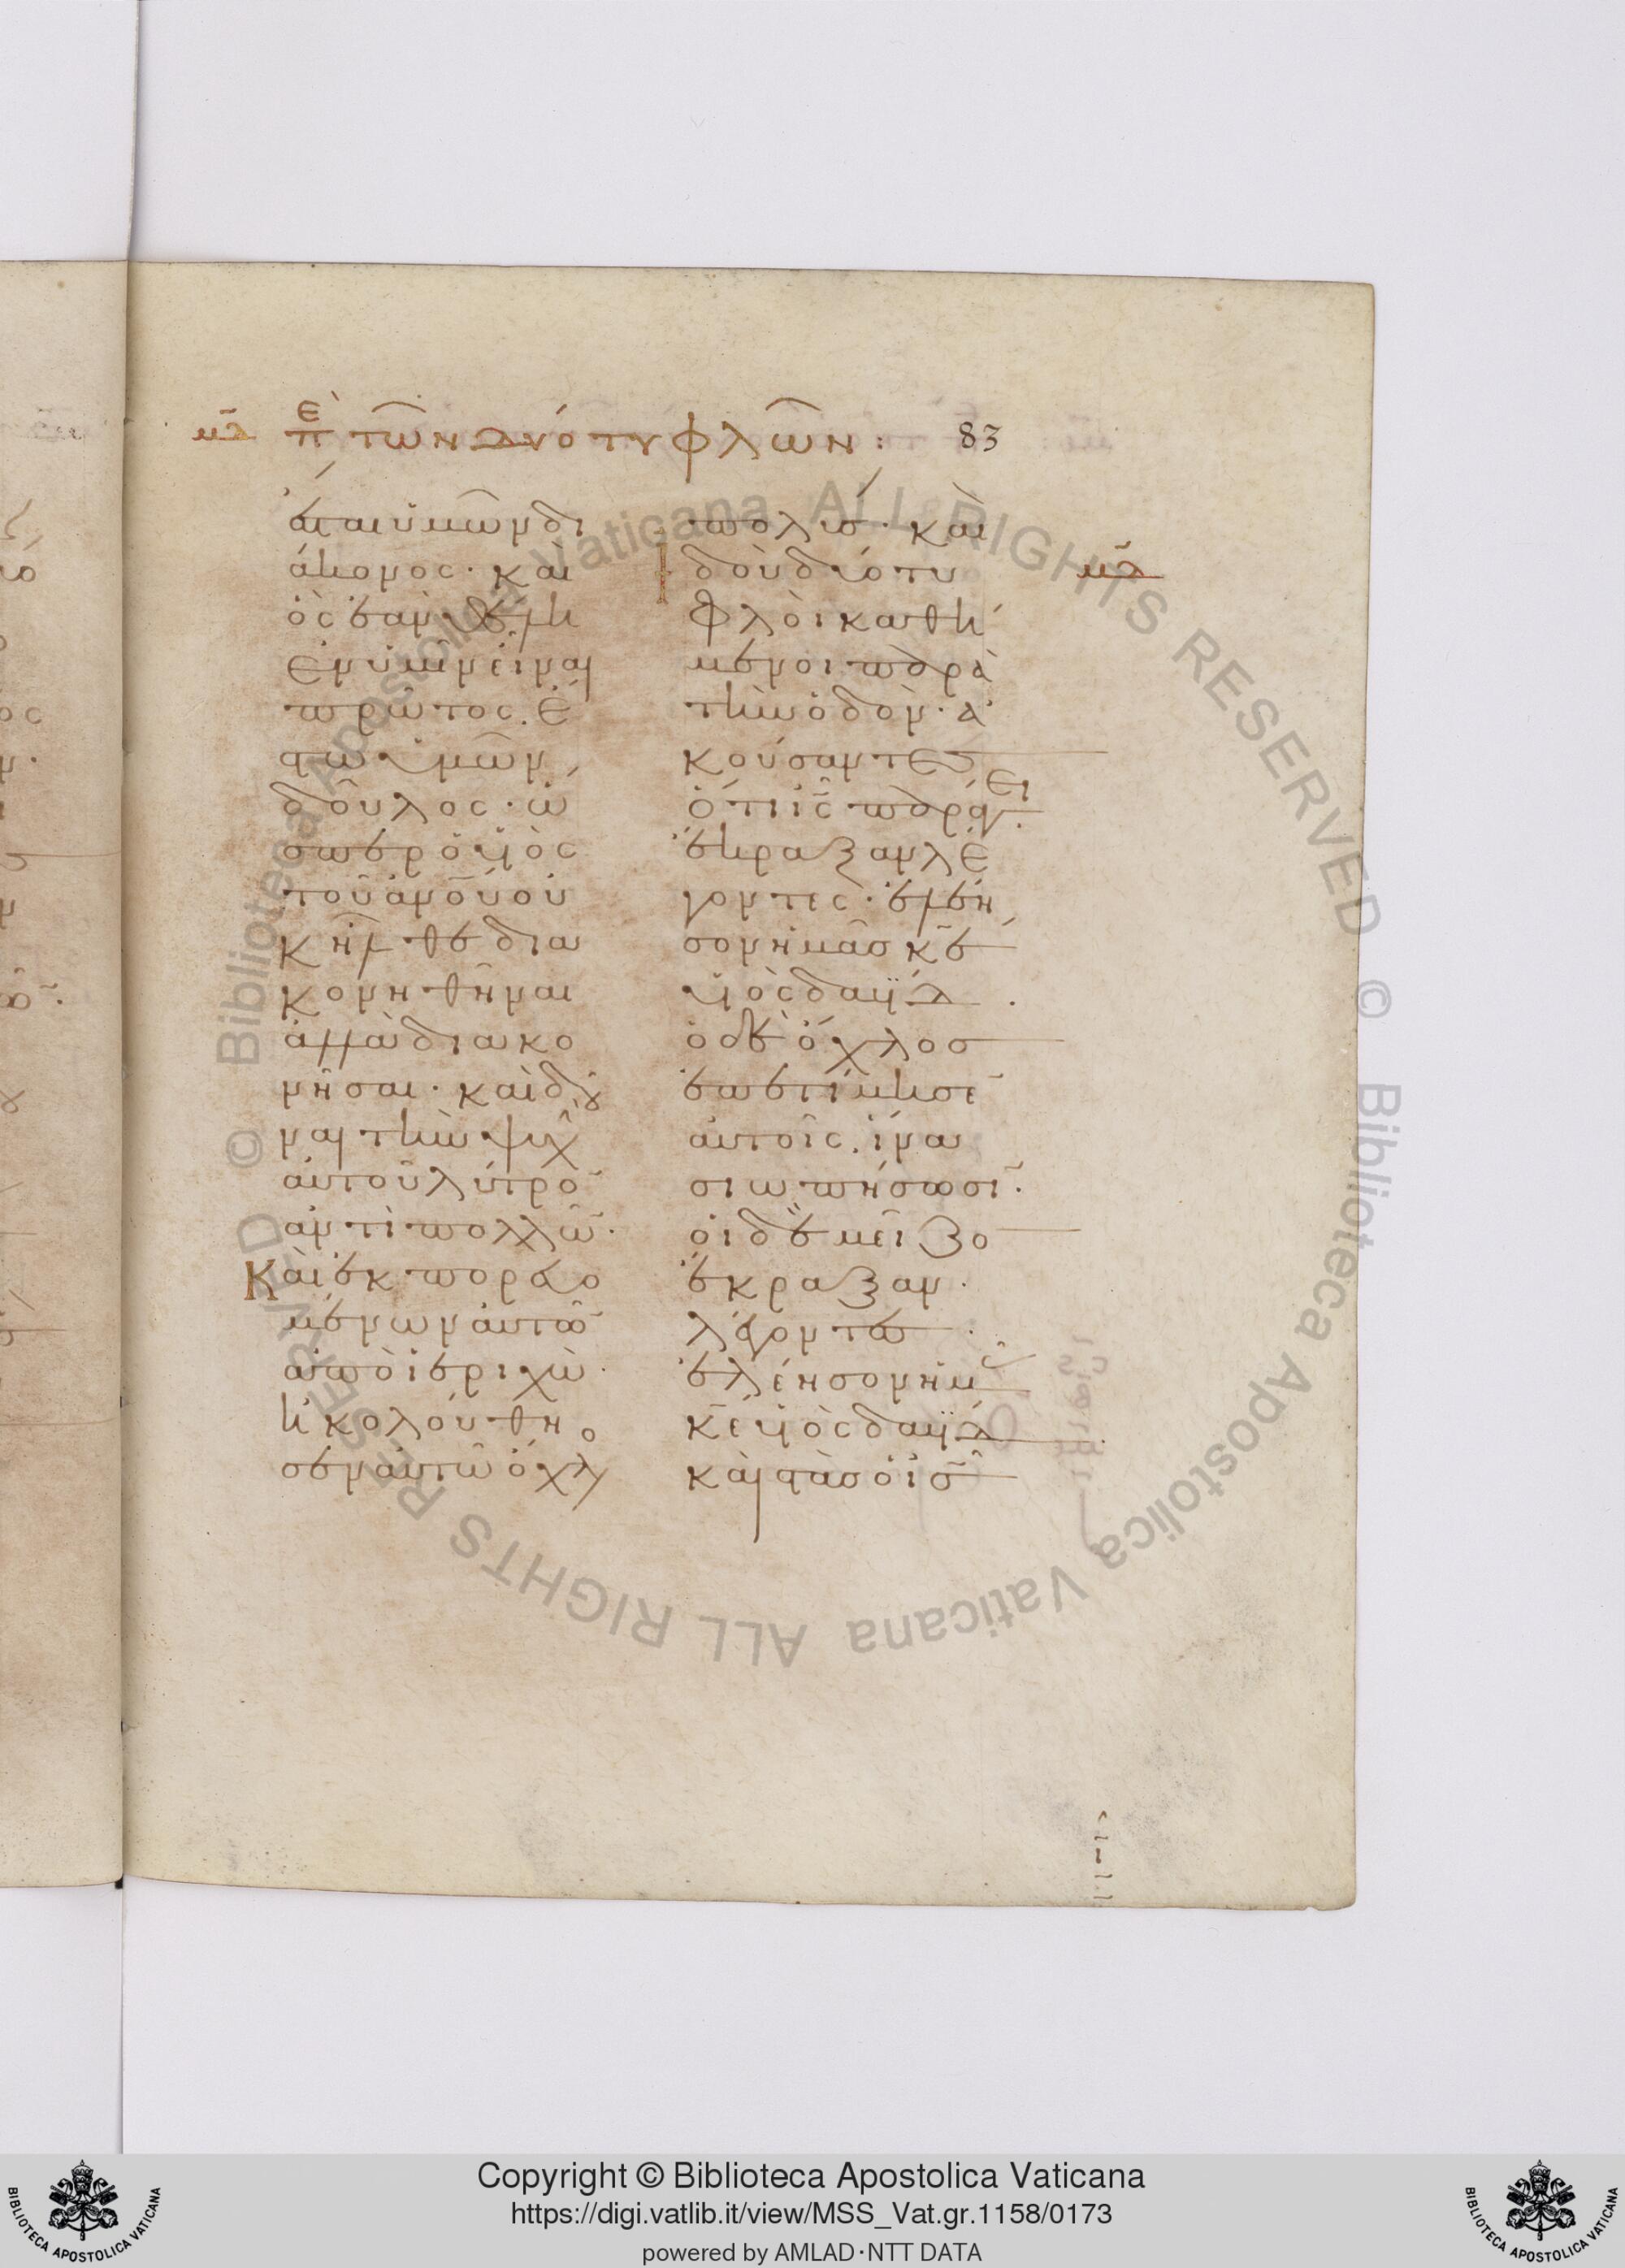 μδ̄ πὲ τῶν δύο τυφλῶν : 83
ἔσται ὑμῶν δι
άκονος · καὶ
ὃς ἐὰν θέλη
ἐν ὑμῖν εἶναι
πρῶτος. ἔ
σται ὑμῶν
δοῦλος · ὥ
σπερ ὁ υἱὸς
τοῦ ἀνο̅υ οὐ
κ ἦλθε δια
κονηθῆναι
ἀλλὰ διακο
νῆσαι · καὶ δοῦ
ναι τὴν ψυχὴ̅
αὐτοῦ λύτρο̅
ἀντὶ πολλῶ̅ ·
Καὶ ἐκπορευο
μένων αὐτῶ̅
ἀπὸ ἱεριχὼ ·
ἠκολούθη
σεν αὐτῶ ὄχλο
πολύς · καὶ
ἰδοὺ δύο τυ
μδ̄
φλοὶ καθή
μενοι παρὰ
τὴν ὁδὸν · ἀ
κούσαντες
ὅτι ις̅ παράγει ·
ἔκραξαν λέ
γοντες · ἐλέη
σον ἡμᾶσ κε̅
υἱὸς δαυΐδ ·
ὁ δὲ ὄχλοσ
ἐπετίμησε̅
αὐτοῖς · ἵνα
σιωπήσωσι̅ ·
οἱ δὲ μεῖζο
ἔκραξαν ·
λέγοντες ·
ἐλέησον ἡμᾶς
κε̅ υἱὸς δαυΐδ ·
καὶ στὰσ ὁ ισ̅
Copyright © Biblioteca Apostolica Vaticana
https://digi.vatlib.it/view/MSS_Vat.gr.1158/0173
powered by AMLAD·NTT DATA
BIBLIOTECA APOSTOLICA VATICANA
BIBLIOTECA APOSTOLICA VATICANA
© Biblioteca Apostolica Vaticana ALL RIGHTS RESERVED
© Biblioteca Apostolica Vaticana ALL RIGHTS RESERVED